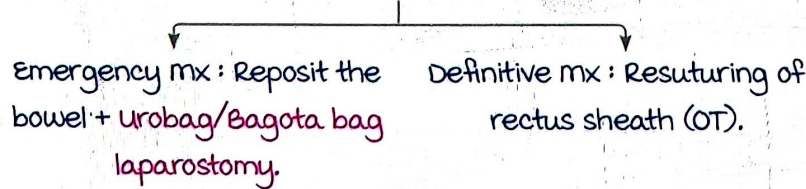 Emergency mx : Reposit the
bowel + urobag/Bagota bag
laparostomy.
Definitive mx : Resuturing of
rectus sheath (OT).